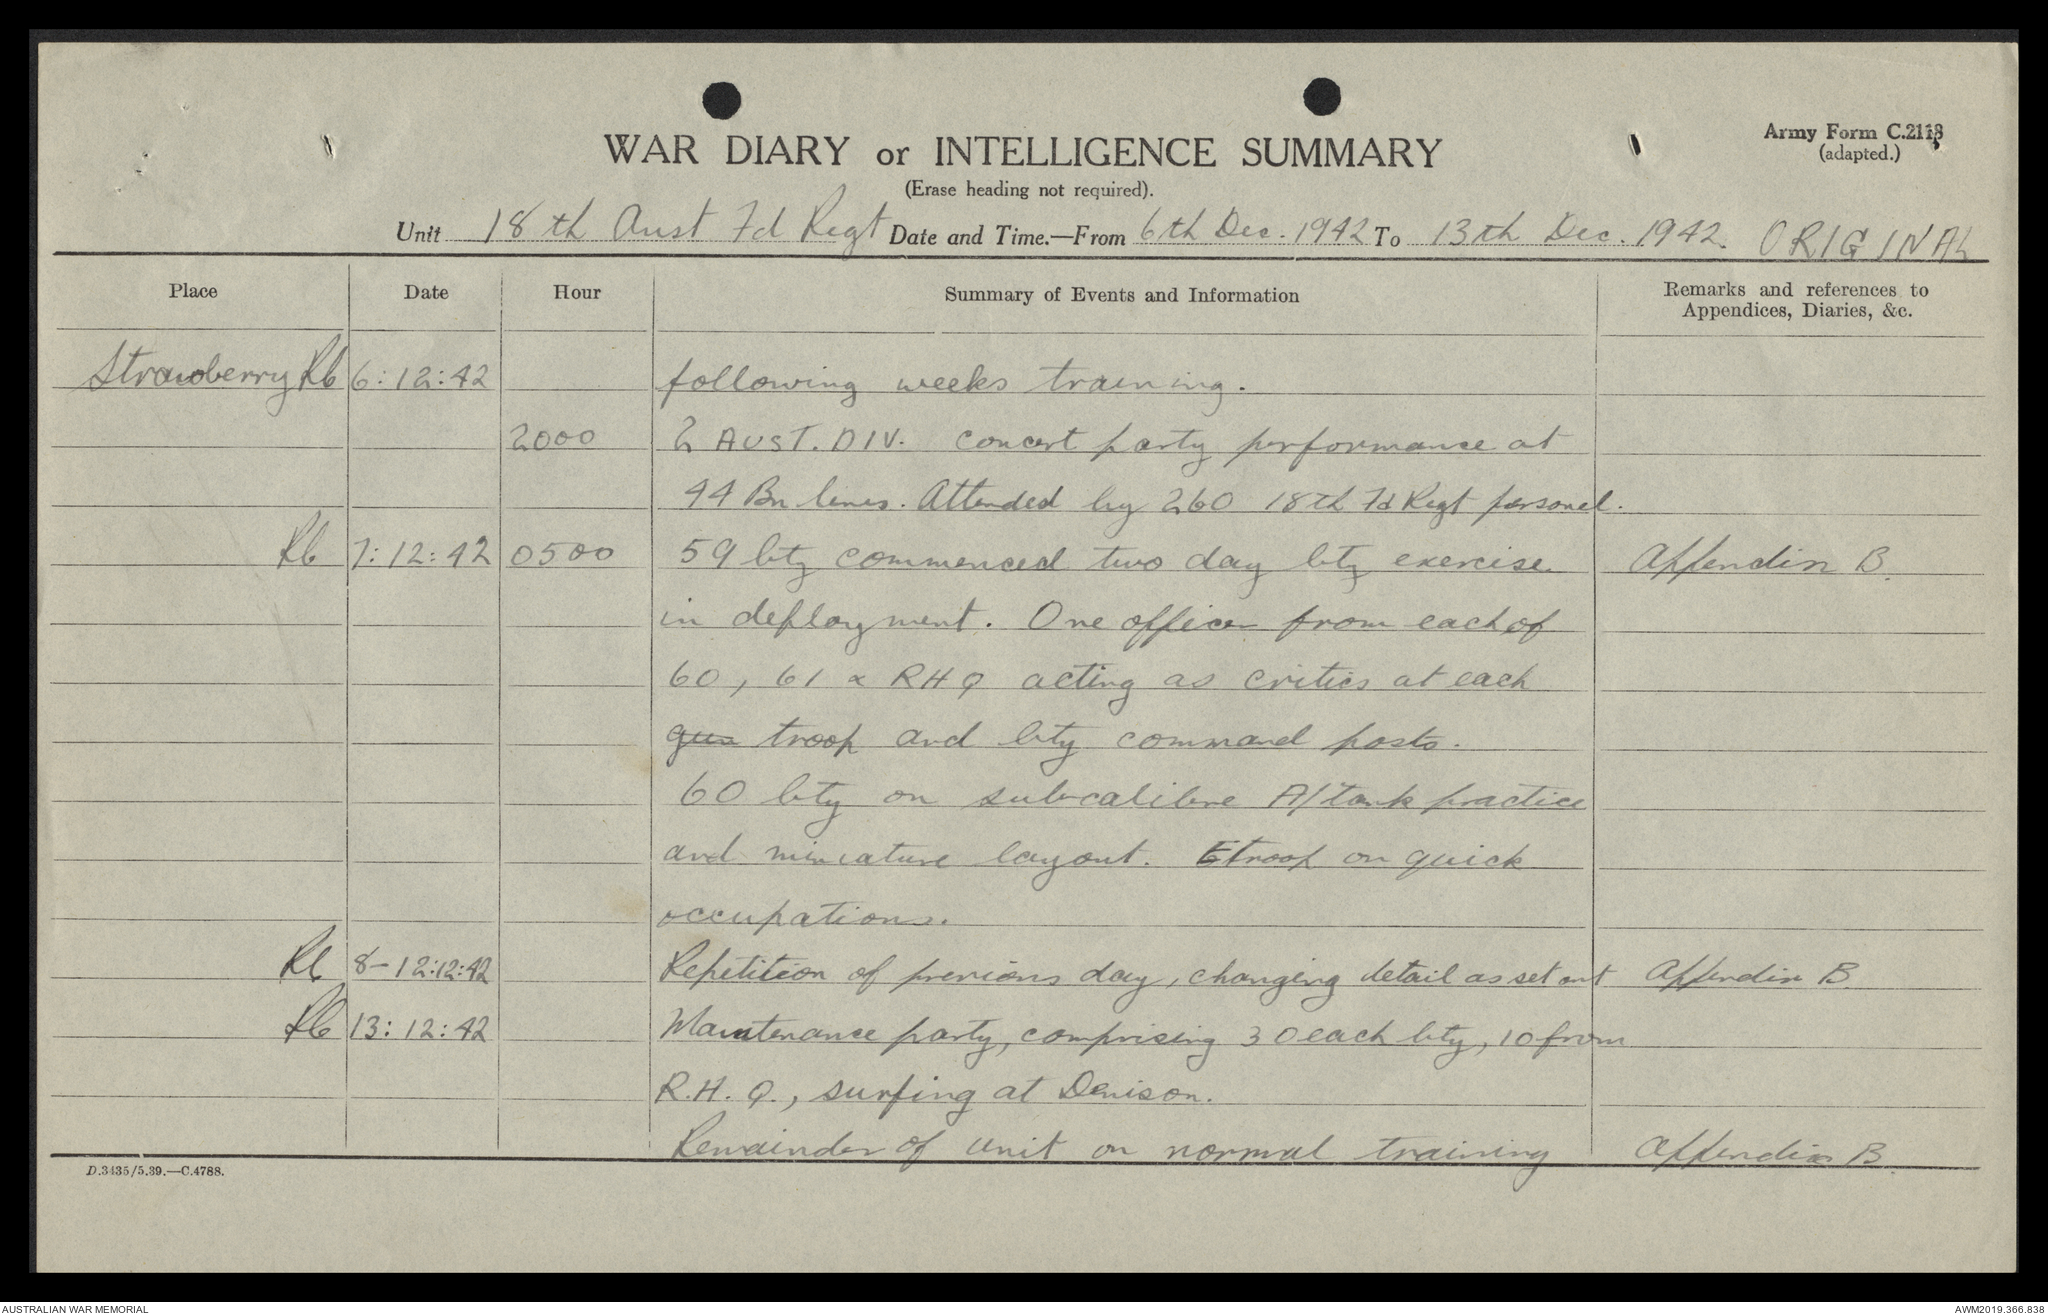 Army Form C.2118
(adapted.)
WAR DIARY or INTELLIGENCE SUMMARY
(Erase heading not required).
Unit 18th Aust Fd Regt Date and Time.—From 6th Dec. 1942 To 13th Dec. 1942. ORIGINAL
Place Date Hour Summary of Events and Information Remarks and references to
Appendices, Diaries, &c.
Strawberry 6:12:42 following weeks training.
2000 2 AUST. DIV. concert party performance at
44 Bn lines. Attended by 260 18th Fd Regt personel.
7:12:42 0500 59 bty commenced two day bty exercise Appendix B.
in deployment. One officer from each of
60, 61 & RHQ acting as critics at each
gun troop and bty command posts.
60 bty on sub-calibre A/tank practice
and miniature layout. E troop on quick
occupations.
8-12:12:42 Repetition of previous day, changing detail as set out Appendix B.
13:12:42 Maintenance party, comprising 30 each bty, 10 from
R.H.Q., surfing at Denison.
Remainder of unit on normal training Appendix B.
D.3435/5.39.—C.4788.
AUSTRALIAN WAR MEMORIAL AWM2019.366.838